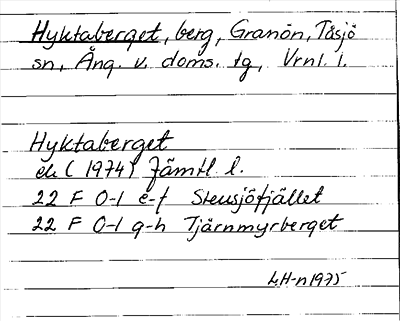 Hyktaberget, berg, Granön, Tåsjö
sn, Ång. v. doms. tg, Vrnl. l.
Hyktaberget
ek (1974) Jämtl. l.
22 F 0-1 e-f Stensjöfjället
22 F 0-1 g-h Tjärnmyrberget
LH-n 1975